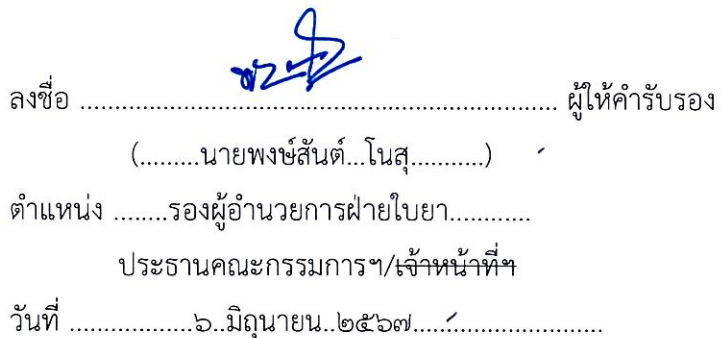 ลงชื่อ ........................................................................ ผู้ให้คำรับรอง
(.........นายพงษ์สันต์...โนสุ...........)
ตำแหน่ง ........รองผู้อำนวยการฝ่ายใบยา............
ประธานคณะกรรมการฯ/เจ้าหน้าที่ฯ
วันที่ ..................๖..มิถุนายน..๒๕๖๗................................